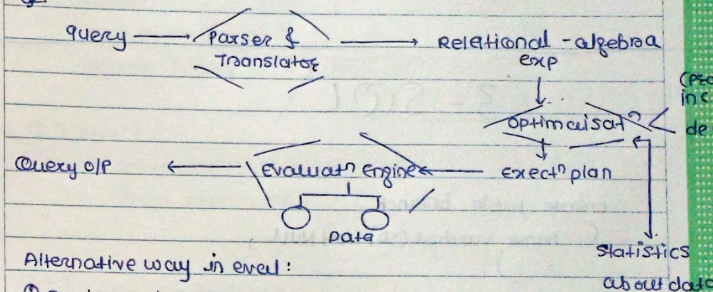 query Parser & Relational-algebra
Translator exp
optimaisatⁿ
de
Query o/p Evaluatⁿ engine Exectⁿ plan
Data
Statistics
about data
Alternative way in eval: